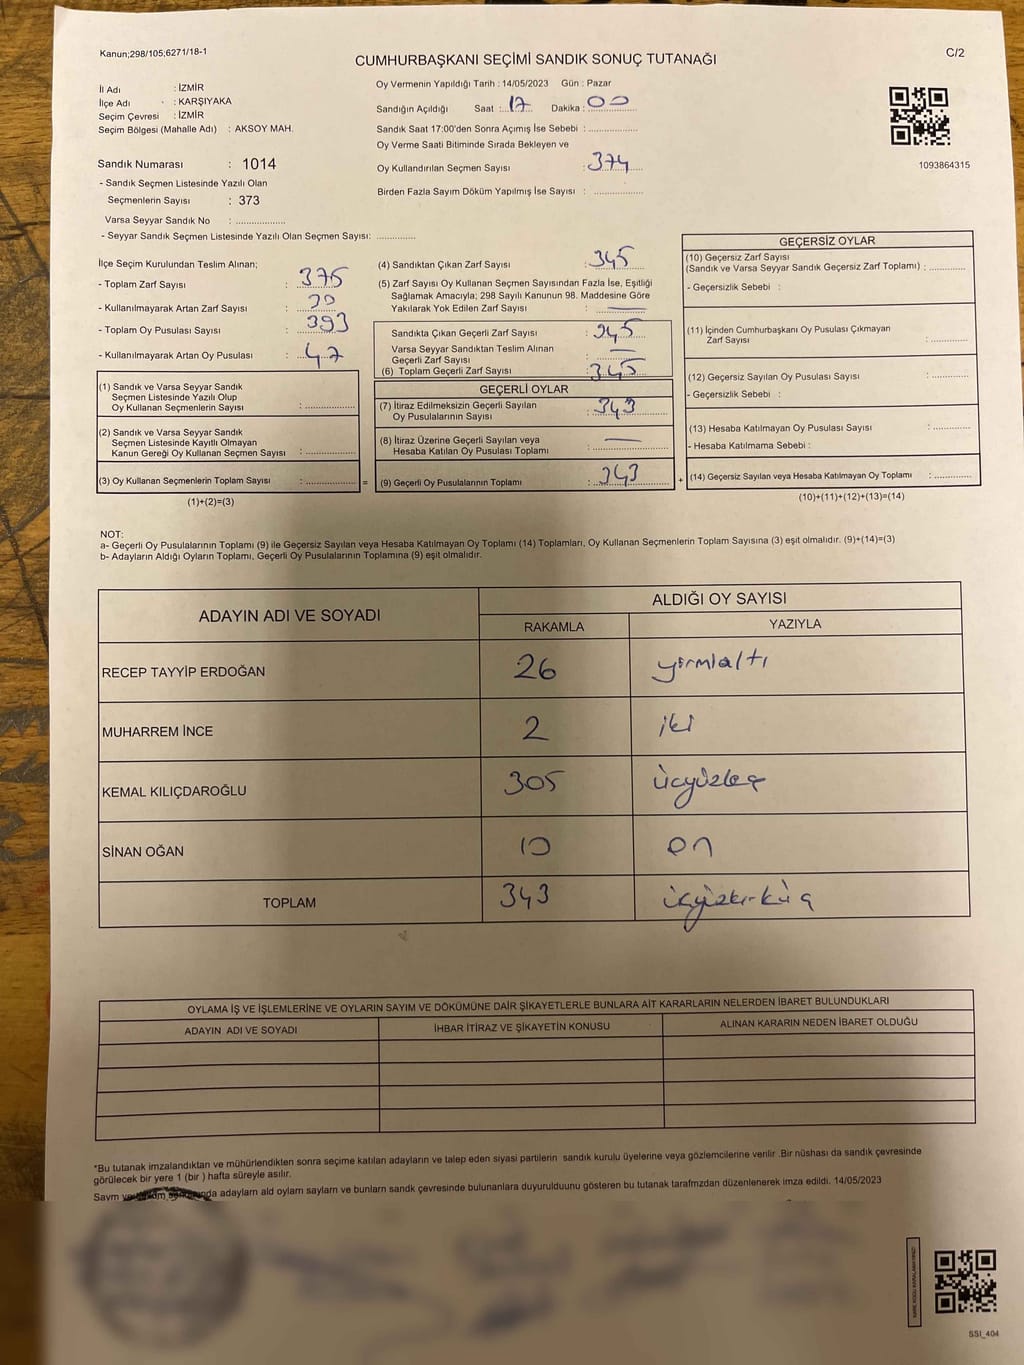 Kanun;298/105;6271/18-1
C/2
CUMHURBAŞKANI SEÇİMİ SANDIK SONUÇ TUTANAĞI
İl Adı : İZMİR
İlçe Adı : KARŞIYAKA
Seçim Çevresi : İZMİR
Seçim Bölgesi (Mahalle Adı) : AKSOY MAH.
Sandık Numarası : 1014
- Sandık Seçmen Listesinde Yazılı Olan
Seçmenlerin Sayısı : 373
Varsa Seyyar Sandık No : ..................
- Seyyar Sandık Seçmen Listesinde Yazılı Olan Seçmen Sayısı: ..............
Oy Vermenin Yapıldığı Tarih : 14/05/2023 Gün : Pazar
Sandığın Açıldığı Saat : 17 Dakika : 00
Sandık Saat 17:00'den Sonra Açımış İse Sebebi : ..................
Oy Verme Saati Bitiminde Sırada Bekleyen ve
Oy Kullandırılan Seçmen Sayısı : 374
Birden Fazla Sayım Döküm Yapılmış İse Sayısı : ..................
1093864315
İlçe Seçim Kurulundan Teslim Alınan;
- Toplam Zarf Sayısı : 375
- Kullanılmayarak Artan Zarf Sayısı : 30
- Toplam Oy Pusulası Sayısı : 393
- Kullanılmayarak Artan Oy Pusulası : 47
(1) Sandık ve Varsa Seyyar Sandık
Seçmen Listesinde Yazılı Olup
Oy Kullanan Seçmenlerin Sayısı : ..................
(2) Sandık ve Varsa Seyyar Sandık
Seçmen Listesinde Kayıtlı Olmayan
Kanun Gereği Oy Kullanan Seçmen Sayısı : ..................
(3) Oy Kullanan Seçmenlerin Toplam Sayısı : .................. =
(1)+(2)=(3)
(4) Sandıktan Çıkan Zarf Sayısı : 345
(5) Zarf Sayısı Oy Kullanan Seçmen Sayısından Fazla İse, Eşitliği
Sağlamak Amacıyla; 298 Sayılı Kanunun 98. Maddesine Göre
Yakılarak Yok Edilen Zarf Sayısı : —
Sandıkta Çıkan Geçerli Zarf Sayısı : 345
Varsa Seyyar Sandıktan Teslim Alınan
Geçerli Zarf Sayısı : —
(6) Toplam Geçerli Zarf Sayısı : 345
GEÇERLİ OYLAR
(7) İtiraz Edilmeksizin Geçerli Sayılan
Oy Pusulalarının Sayısı : 343
(8) İtiraz Üzerine Geçerli Sayılan veya
Hesaba Katılan Oy Pusulası Toplamı : —
(9) Geçerli Oy Pusulalarının Toplamı : 343 +
GEÇERSİZ OYLAR
(10) Geçersiz Zarf Sayısı
(Sandık ve Varsa Seyyar Sandık Geçersiz Zarf Toplamı) : .............
- Geçersizlik Sebebi :
(11) İçinden Cumhurbaşkanı Oy Pusulası Çıkmayan
Zarf Sayısı : .............
(12) Geçersiz Sayılan Oy Pusulası Sayısı : .............
- Geçersizlik Sebebi :
(13) Hesaba Katılmayan Oy Pusulası Sayısı : .............
- Hesaba Katılmama Sebebi :
(14) Geçersiz Sayılan veya Hesaba Katılmayan Oy Toplamı : .............
(10)+(11)+(12)+(13)=(14)
NOT:
a- Geçerli Oy Pusulalarının Toplamı (9) ile Geçersiz Sayılan veya Hesaba Katılmayan Oy Toplamı (14) Toplamları, Oy Kullanan Seçmenlerin Toplam Sayısına (3) eşit olmalıdır. (9)+(14)=(3)
b- Adayların Aldığı Oyların Toplamı, Geçerli Oy Pusulalarının Toplamına (9) eşit olmalıdır.
ADAYIN ADI VE SOYADI ALDIĞI OY SAYISI
RAKAMLA YAZIYLA
RECEP TAYYİP ERDOĞAN 26 yirmialtı
MUHARREM İNCE 2 iki
KEMAL KILIÇDAROĞLU 305
SİNAN OĞAN 10 on
TOPLAM 343
OYLAMA İŞ VE İŞLEMLERİNE VE OYLARIN SAYIM VE DÖKÜMÜNE DAİR ŞİKAYETLERLE BUNLARA AİT KARARLARIN NELERDEN İBARET BULUNDUKLARI
ADAYIN ADI VE SOYADI İHBAR İTİRAZ VE ŞİKAYETİN KONUSU ALINAN KARARIN NEDEN İBARET OLDUĞU
*Bu tutanak imzalandıktan ve mühürlendikten sonra seçime katılan adayların ve talep eden siyasi partilerin sandık kurulu üyelerine veya gözlemcilerine verilir .Bir nüshası da sandık çevresinde
görülecek bir yere 1 (bir ) hafta süreyle asılır.
Saym adaylarn ald oylarn saylarn ve bunlarn sandk çevresinde bulunanlara duyurulduunu gösteren bu tutanak tarafmzdan düzenlenerek imza edildi. 14/05/2023
SSI_404